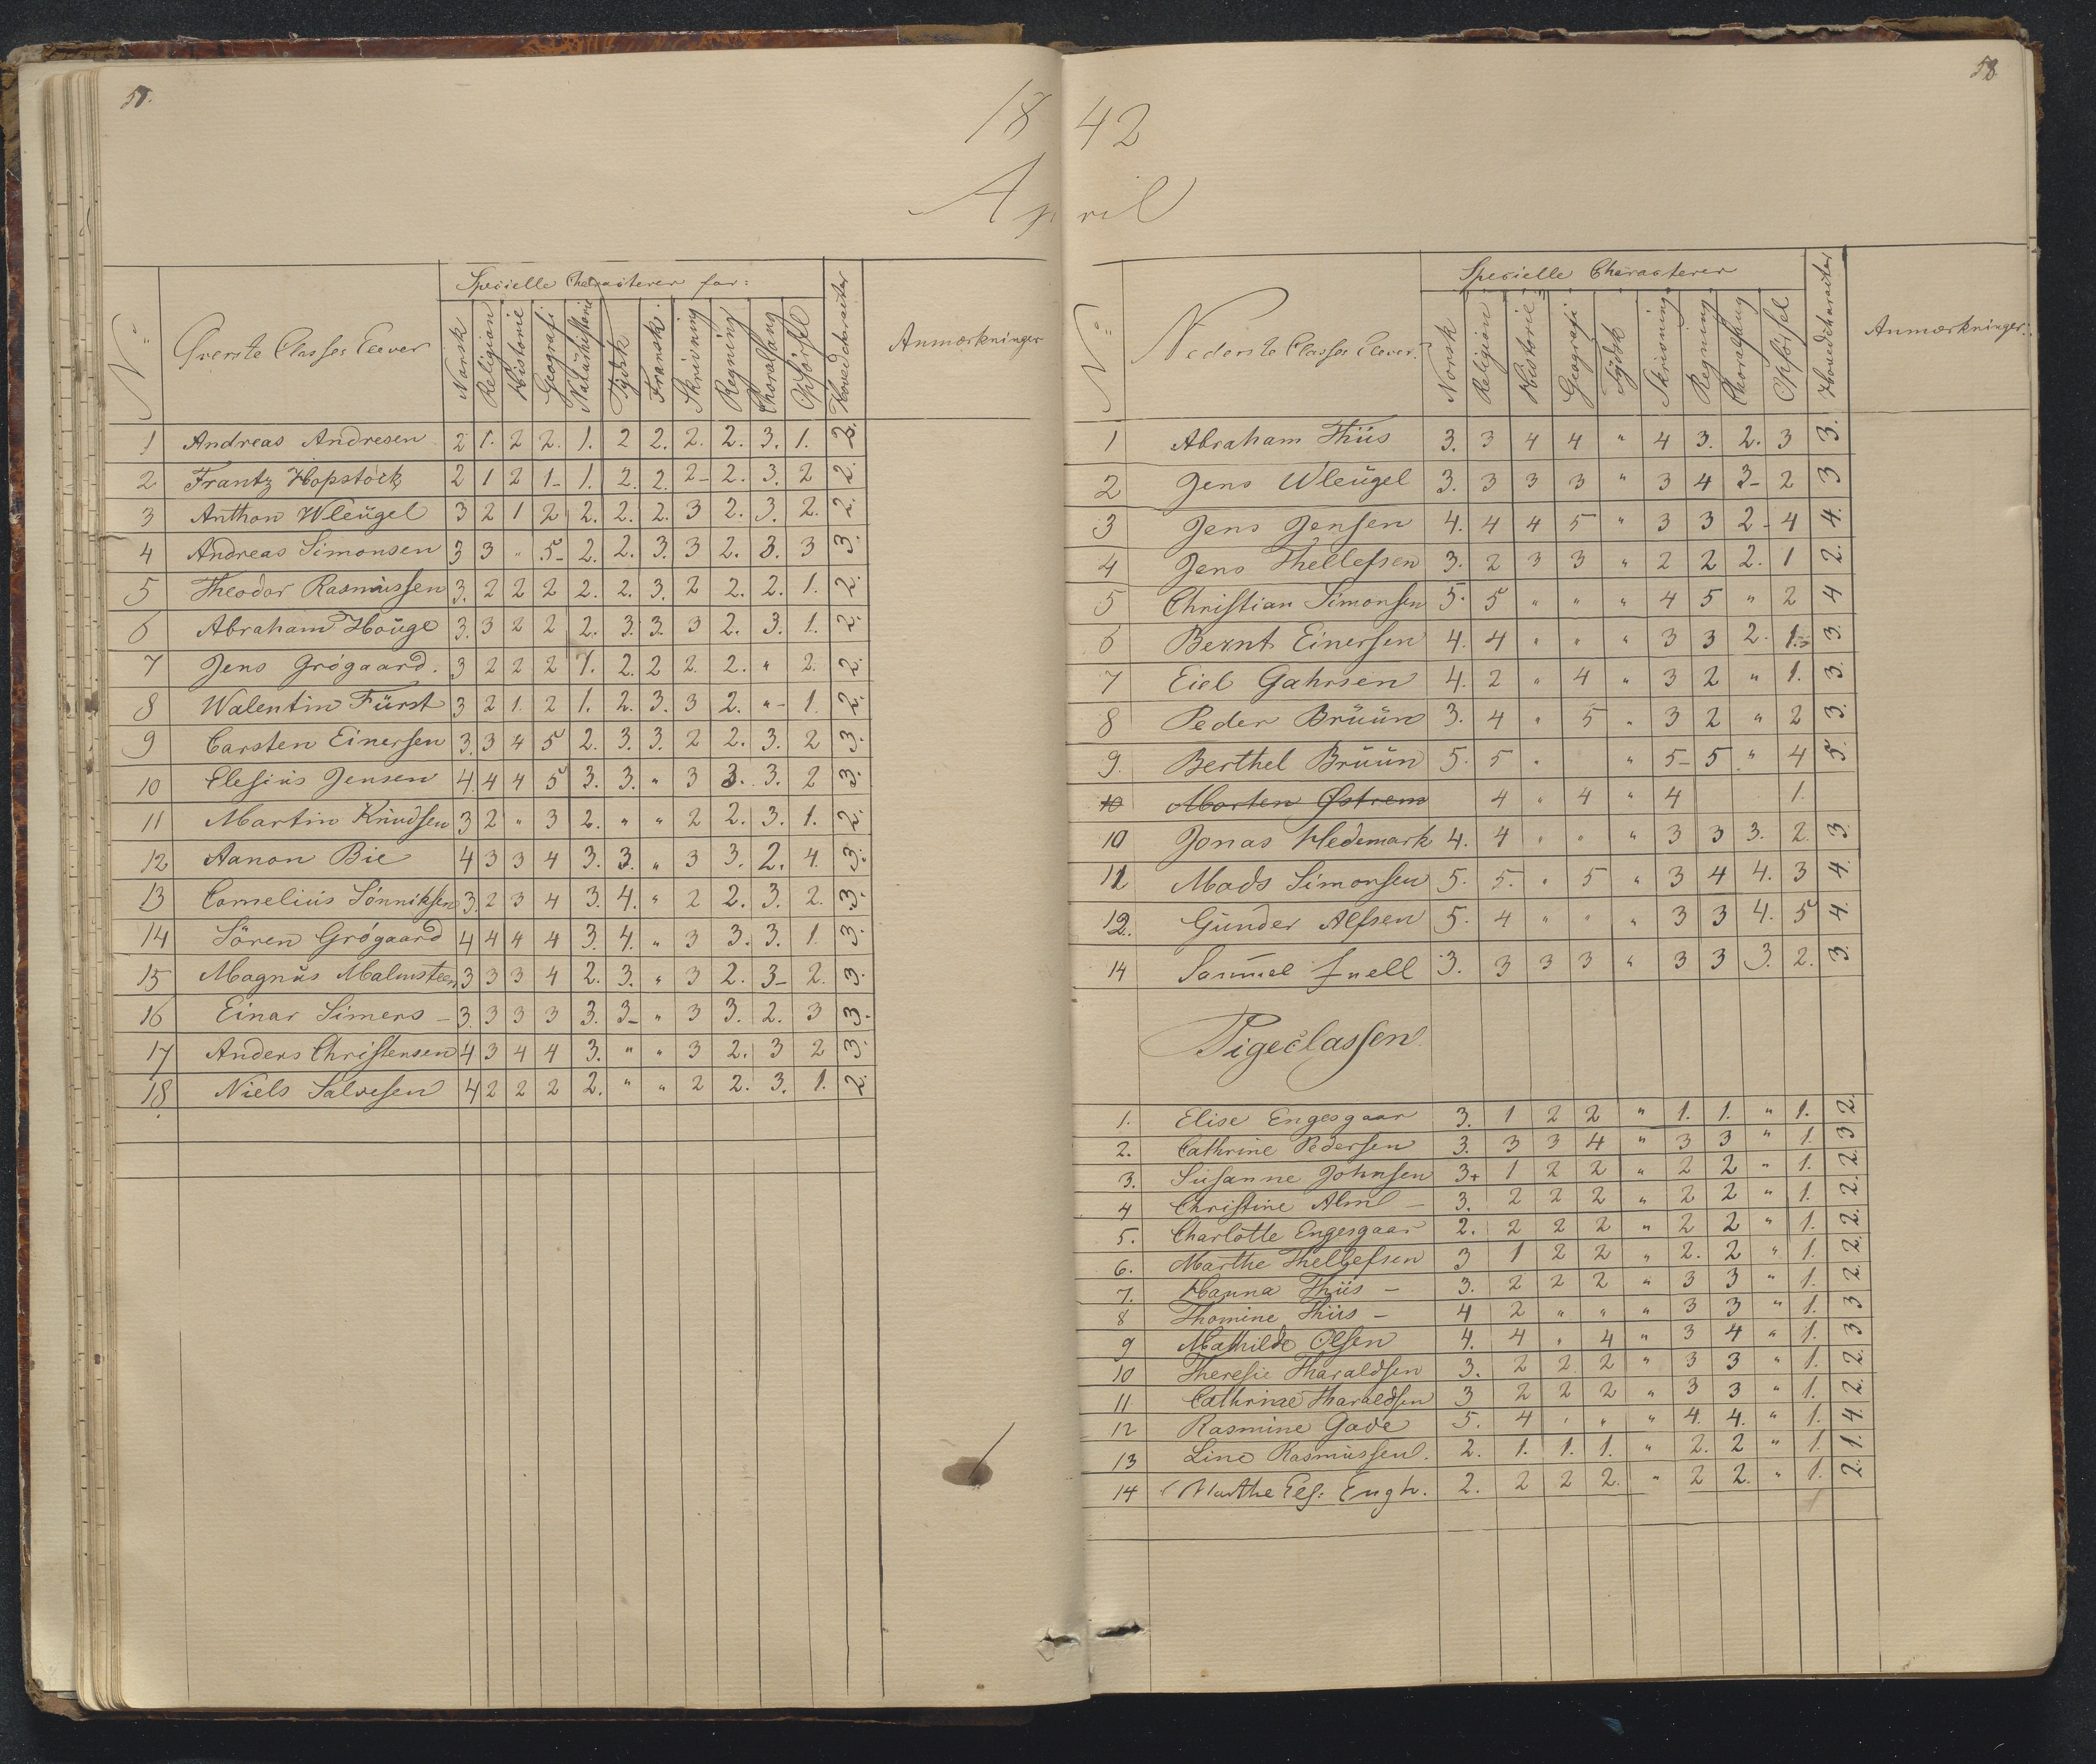 57.
1842
April
Nº Øverste Classes Elever Specielle Characterer for: Hovedcharacter Anmærkninger
Norsk Religion Historie Geografi Naturhistorie Tydsk Fransk Skrivning Regning Choralsang Opførsel
1 Andreas Andresen 2 1. 2 2. 1. 2 2. 2. 2. 3. 1. 2.
2 Frantz Hopstock 2 1 2 1- 1. 2. 2. 2- 2. 3. 2 2.
3 Anthon Wleügel 3 2 1 2 2. 2. 2. 3 2. 3. 2. 2.
4 Andreas Simonsen 3 3 " 5- 2. 2. 3. 3 2. 3. 3 3.
5 Theodor Rasmüssen 3. 2 2 2 2. 2. 3. 2 2. 2. 1. 2.
6 Abraham Houge 3. 3 2 2 2. 3. 3. 3 2. 3. 1. 2.
7 Jens Grögaard. 3 2 2 2 1. 2. 2 2. 2. " 2. 2.
8 Walentin Fürst 3 2 1. 2 1. 2. 3. 3 2. "- 1. 2.
9 Carsten Einersen 3. 3 4 5 2. 3. 3. 2 2. 3. 2 3.
10 Elesius Jensen 4. 4 4 5 3. 3. " 3 3. 3. 2 3.
11 Martin Knudsen 3 2 " 3 2. " " 2 2. 3. 1. 2.
12 Aanon Bie 4 3 3 4 3. 3. " 3 3. 2. 4. 3.
13 Cornelius Sönniksen 3. 2 3 4 3. 4. " 2 2. 3. 2. 3.
14 Sören Grögaard 4 4 4 4 3. 4. " 3 3. 3. 1. 3.
15 Magnus Malmsteen 3 3 3 4 2. 3. " 3 2. 3- 2. 3.
16 Einar Simers - 3. 3 3 3 3. 3- " 3 3. 2. 3 3.
17 Anders Christensen 4 3 4 4 3. " " 3 2. 3 2 3.
18 Niels Salvesen 4 2 2 2 2. " " 2 2. 3. 1. 2.
58
Nº Nederste Classes Elever. Specielle Characterer Hovedcharacter Anmærkninger.
Norsk Religion Historie Geografi Tydsk Skrivning Regning Choralsang Opførsel
1 Abraham Thiis 3. 3 4 4 " 4 3. 2. 3 3.
2 Jens Wleügel 3. 3 3 3 " 3 4 3- 2 3
3 Jens Jensen 4. 4 4 5 " 3 3 2- 4 4.
4 Jens Thellefsen 3. 2 3 3 " 2 2 2. 1 2.
5 Christian Simonsen 5. 5 " " " 4 5 " 2 4
6 Bernt Einersen 4. 4 " " " 3 3 2. 1. 3.
7 Eiel Gahrsen 4. 2 " 4 " 3 2 " 1. 3.
8 Peder Brüün 3. 4 " 5 " 3 2 " 2 3.
9. Berthel Brüün 5. 5 " " 5- 5 " 4 5.
10 Morten Østrem 4 " 4 " 4 1.
10 Jonas Hedemark 4. 4 " " " 3 3 3. 2. 3.
11 Mads Simonsen 5. 5. " 5 " 3 4 4. 3 4.
12. Günder Alfsen 5. 4 " " " 3 3 4. 5 4.
14 Samuel Juell 3. 3 3 3 " 3 3 3. 2. 3.
Pigeclassen
1. Elise Engesgaar 3. 1 2 2 " 1. 1. " 1. 2.
2. Cathrine Pedersen 3. 3 3 4 " 3 3 " 1. 3
3. Susanne Johnsen 3+ 1 2 2 " 2 2 " 1. 2.
4 Christine Alm - 3. 2 2 2 " 2 2 " 1. 2.
5. Charlotte Engesgaar 2. 2 2 2 " 2 2 " 1. 2.
6. Marthe Thellefsen 3 1 2 2 " 2. 2 " 1. 2.
7. Hanna Thiis - 3. 2 2 2 " 3 3 " 1. 2.
8 Thomine Thiis - 4 2 " " " 3 3 " 1. 3
9 Mathilde Olsen 4. 4 " 4 " 3 4 " 1. 3
10 Theresie Tharaldsen 3. 2 2 2 " 3 3 " 1. 2.
11 Cathrine Tharaldsen 3 2 2 2 " 3 3 " 1. 2.
12 Rasmine Gade 5. 4 " " " 4. 4. " 1. 4.
13 Line Rasmüssen. 2. 1. 1. 1. " 2. 2 " 1. 1.
14 Marthe Els: Engh. 2. 2 2 2. " 2 2. " 1. 2.